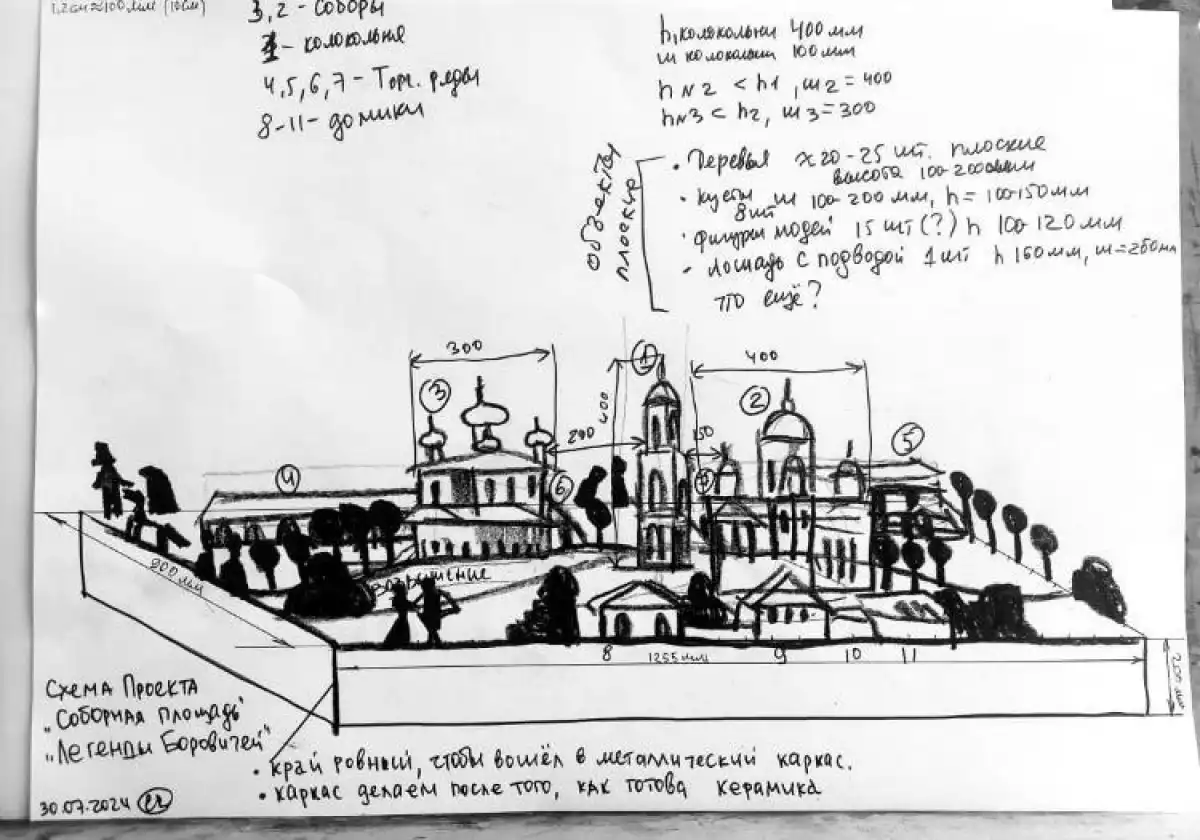 1,2см≈100мм (10см)
3,2 - Соборы
1 - колокольня
4,5,6,7 - Торг. ряды
8-11 - домики
h,колокольни 400мм
ш колокольни 100мм
h№2 < h1, ш2=400
h№3 < h2, ш3=300
объекты плоские
• Деревья х20-25 шт. плоские
высота 100-200мм
• кусты ш 100-200 мм, h=100-150мм
8шт
• фигуры людей 15 шт(?) h 100-120мм
• Лошадь с подводой 1шт h 160мм, ш=250мм
что ещё?
300
1
400
3
400
2
240
150
5
4
6
7
800 мм
возвышение
8
1255мм
9
10
11
200мм
Схема Проекта
„Соборная площадь"
„Легенды Боровичей"
• край ровный, чтобы вошёл в металлический каркас.
• каркас делаем после того, как готова керамика
30.07.2024